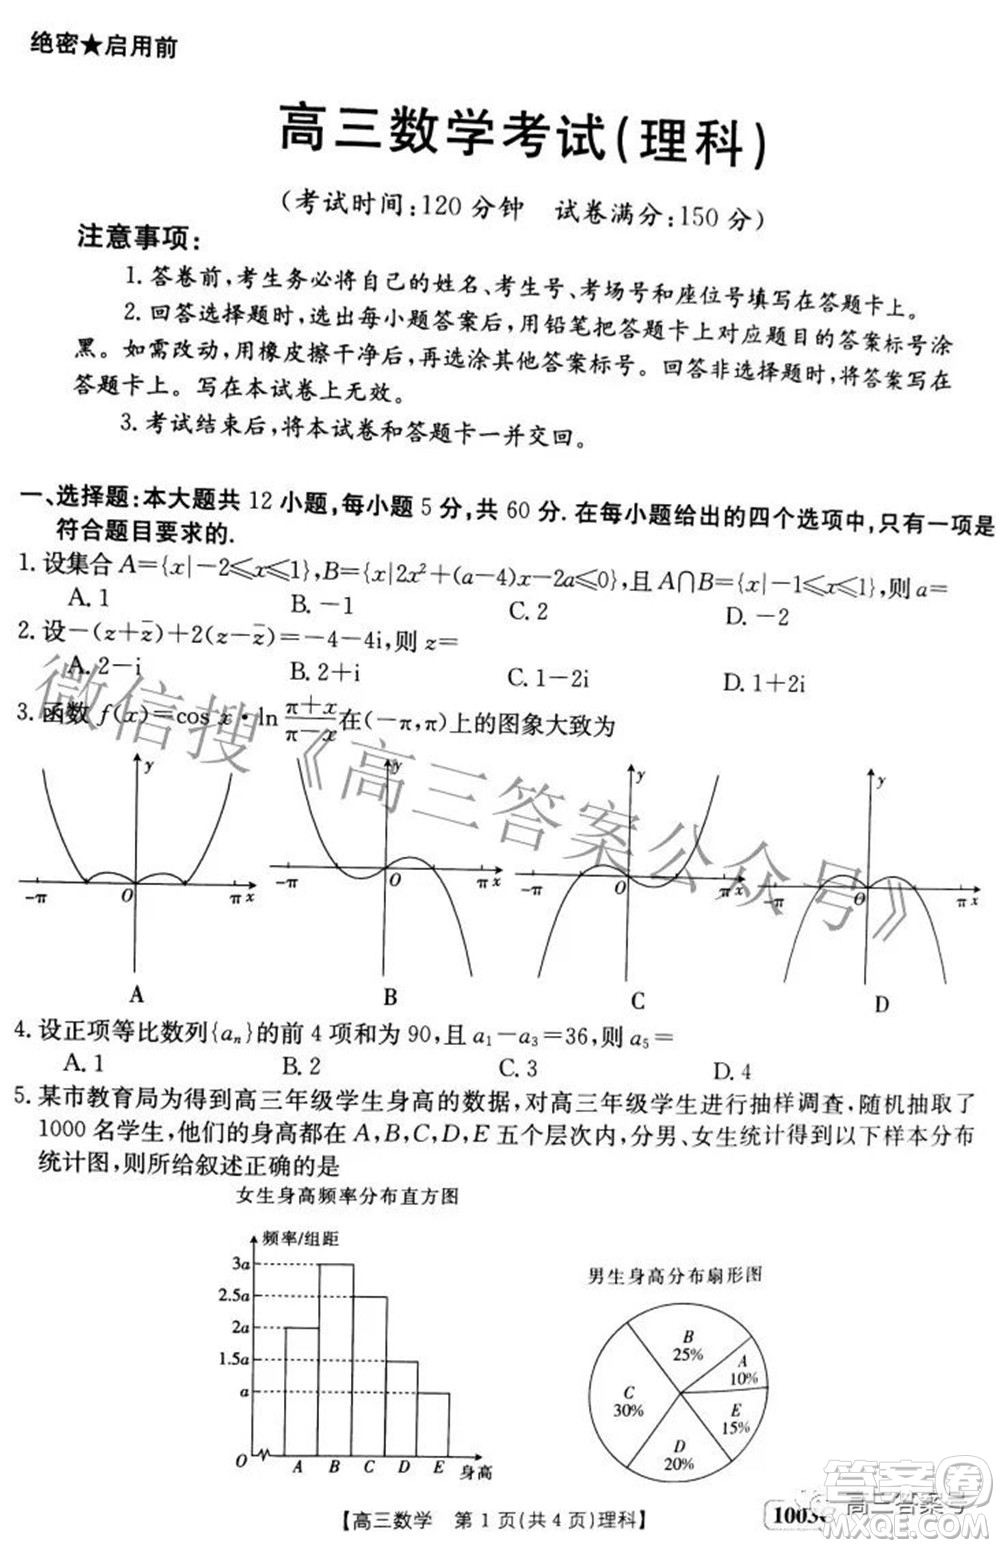 绝密★启用前
高三数学考试(理科)
(考试时间:120分钟 试卷满分:150分)
注意事项:
1.答卷前,考生务必将自己的姓名、考生号、考场号和座位号填写在答题卡上。
2.回答选择题时,选出每小题答案后,用铅笔把答题卡上对应题目的答案标号涂
黑。如需改动,用橡皮擦干净后,再选涂其他答案标号。回答非选择题时,将答案写在
答题卡上。写在本试卷上无效。
3.考试结束后,将本试卷和答题卡一并交回。
一、选择题:本大题共12小题,每小题5分,共60分.在每小题给出的四个选项中,只有一项是
符合题目要求的.
1.设集合A={x|-2≤x≤1},B={x|2x²+(a-4)x-2a≤0},且A∩B={x|-1≤x≤1},则a=
A.1 B.-1 C.2 D.-2
2.设-(z+z̄)+2(z-z̄)=-4-4i,则z=
A.2-i B.2+i C.1-2i D.1+2i
3.函数f(x)=cos x·ln (π+x)/(π-x) 在(-π,π)上的图象大致为
y
-π O π x
A
y
-π O π x
B
y
-π O π x
C
y
-π O π x
D
4.设正项等比数列{aₙ}的前4项和为90,且a₁-a₃=36,则a₅=
A.1 B.2 C.3 D.4
5.某市教育局为得到高三年级学生身高的数据,对高三年级学生进行抽样调查,随机抽取了
1000名学生,他们的身高都在A,B,C,D,E五个层次内,分男、女生统计得到以下样本分布
统计图,则所给叙述正确的是
女生身高频率分布直方图
频率/组距
3a
2.5a
2a
1.5a
a
O A B C D E 身高
男生身高分布扇形图
B
25%
A
10%
C
30%
E
15%
D
20%
【高三数学 第1页(共4页)理科】
1003
微信搜《高三答案公众号》
高三答案号
答案圈
MXQE.COM